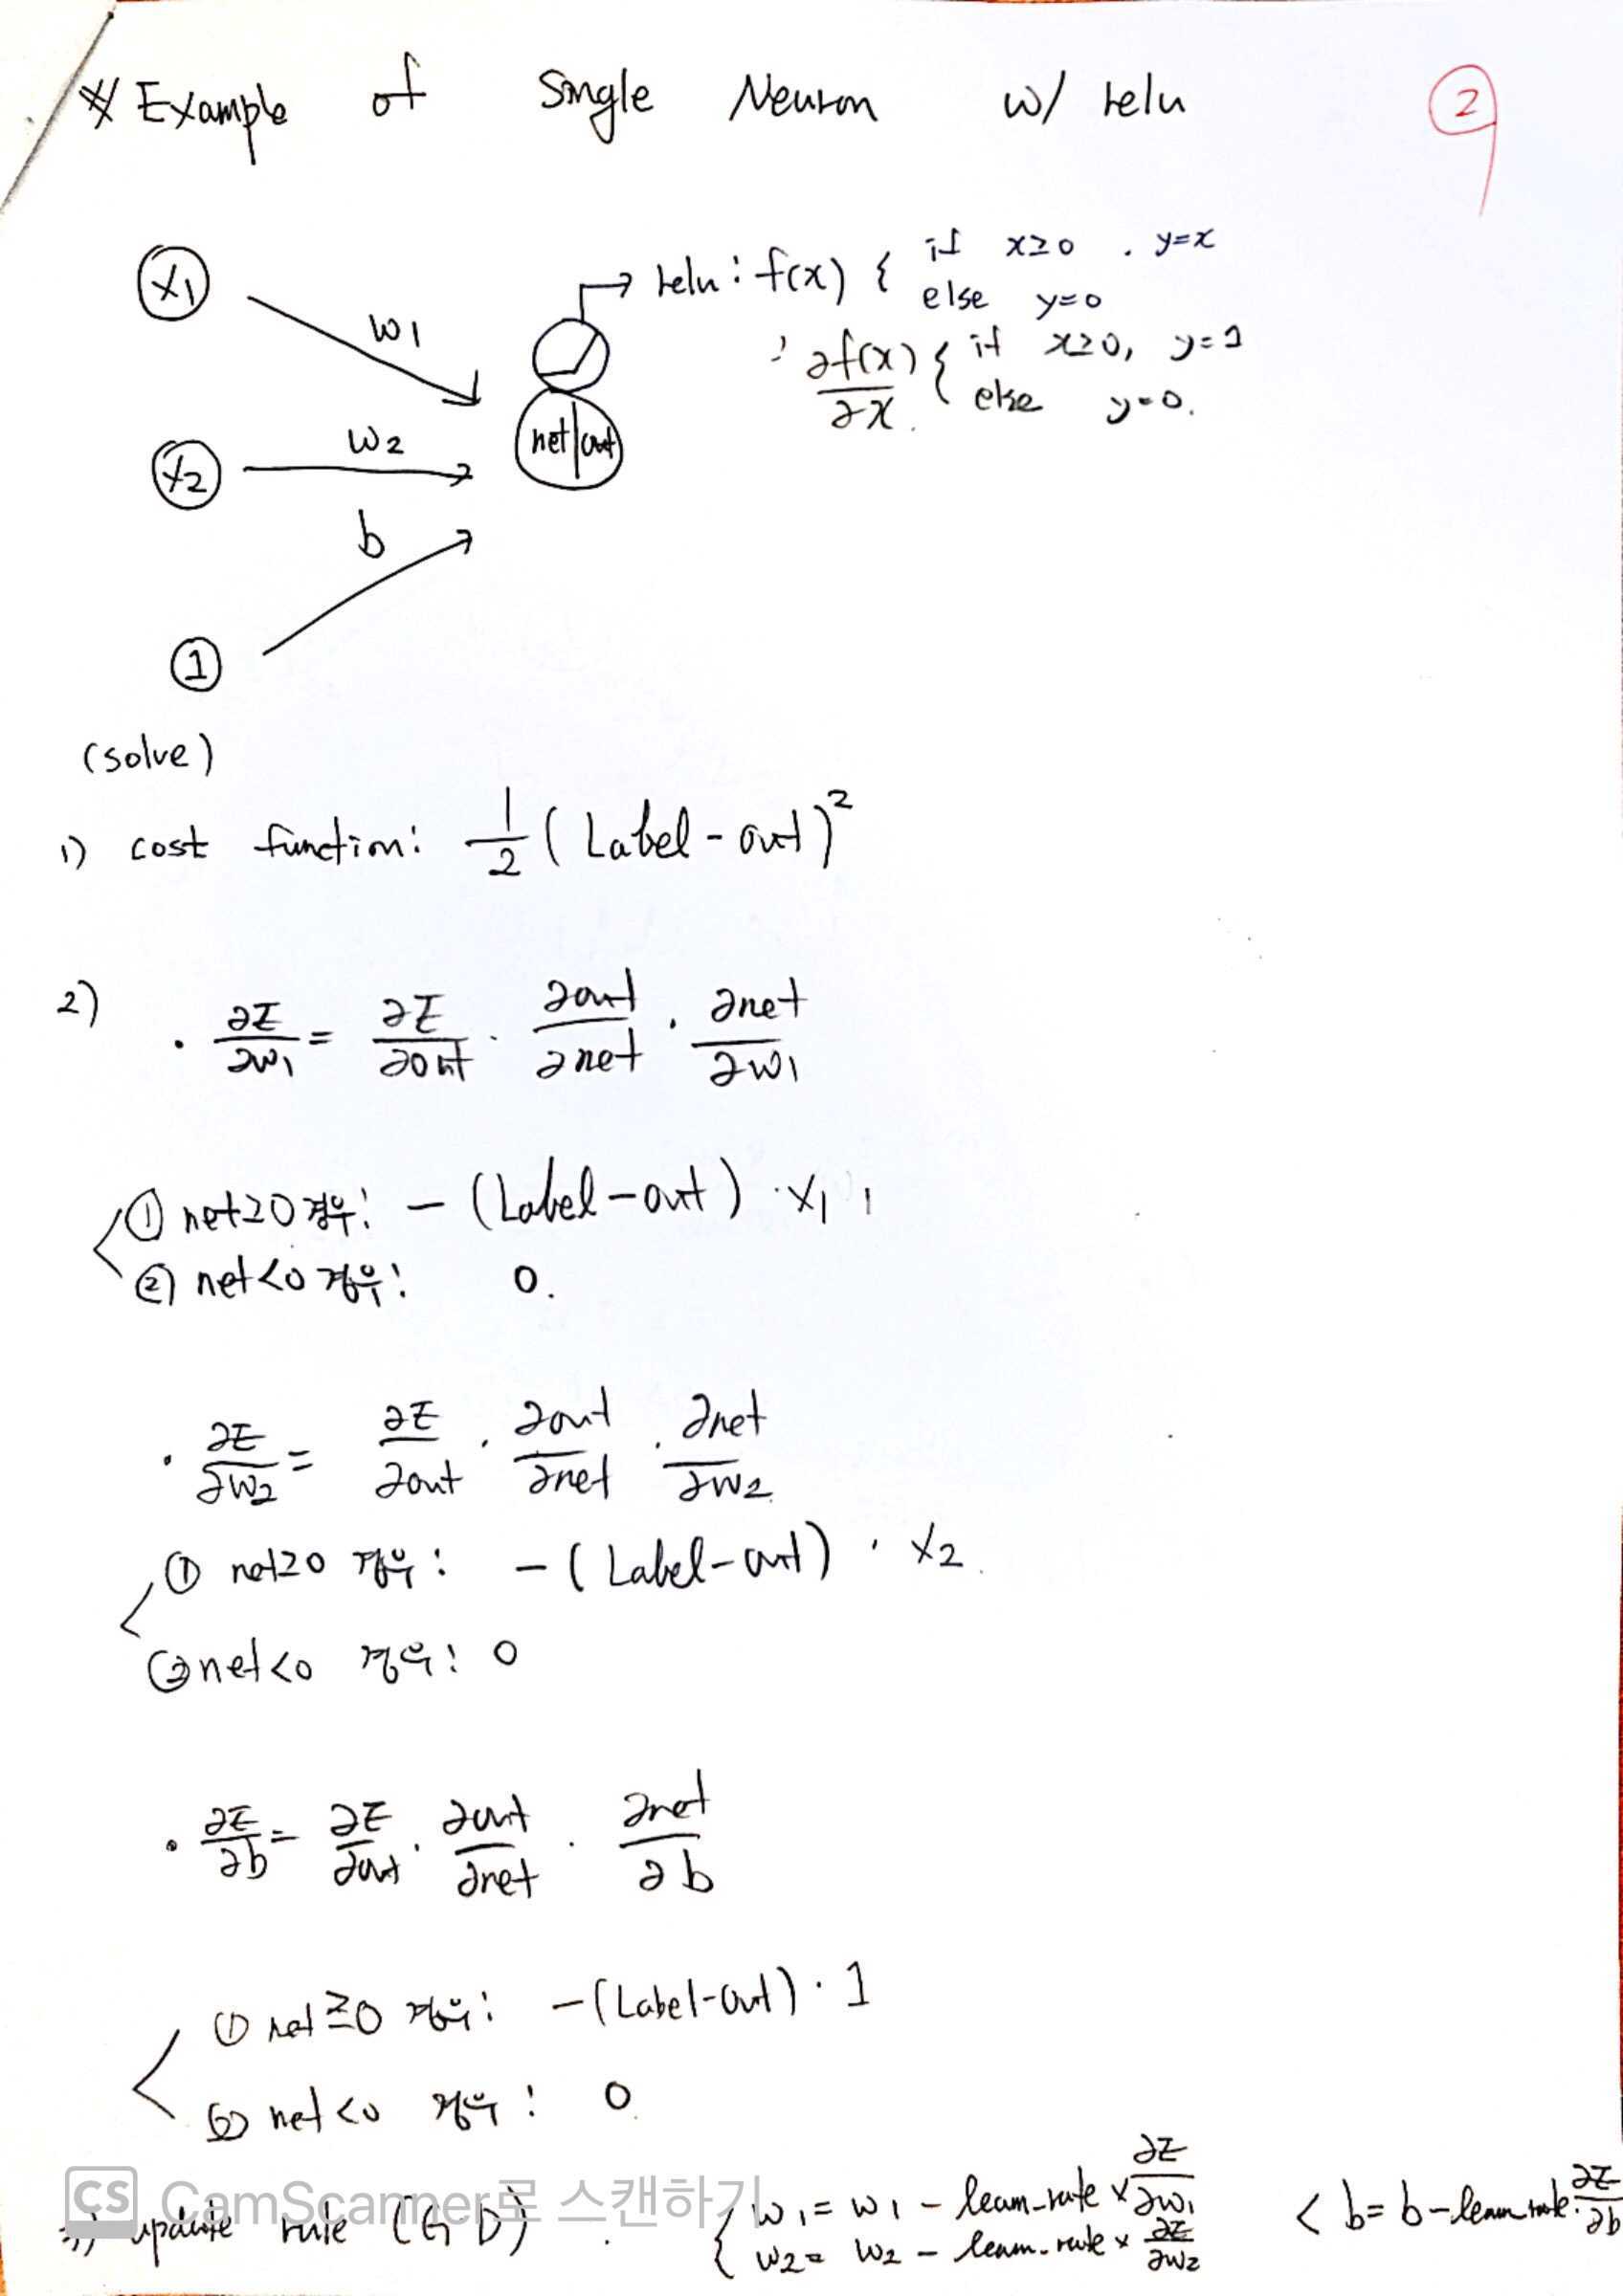 ※ Example of Single Neuron w/ relu
②
x1
w1
→ relu : f(x) { if x≥0 . y=x
else y=0
∂f(x)/∂x { if x≥0, y=1
else y=0.
net|out
x2
w2
b
1
(solve)
1) cost function: 1/2 (Label - out)²
2)
· ∂E/∂w1 = ∂E/∂out · ∂out/∂net · ∂net/∂w1
① net≥0 경우: - (Label - out) · x1
② net<0 경우: 0.
· ∂E/∂w2 = ∂E/∂out · ∂out/∂net · ∂net/∂w2
① net≥0 경우: - (Label - out) · x2
② net<0 경우: 0
· ∂E/∂b = ∂E/∂out · ∂out/∂net · ∂net/∂b
① net≥0 경우: - (Label - out) · 1
② net<0 경우: 0
CS CamScanner로 스캔하기
3) update rule (GD) . { w1 = w1 - learn-rate × ∂E/∂w1 < b = b - learn-rate · ∂E/∂b
w2 = w2 - learn-rate × ∂E/∂w2